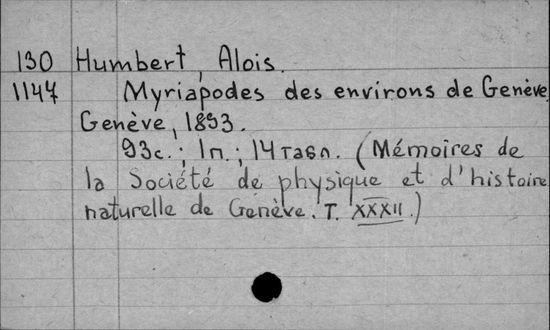 130 Humbert, Alois.
1147 Myriapodes des environs de Genève.
Genève, 1893.
93с.; 1п.; 14 табл. (Mémoires de
la Société de physique et d'histoire
naturelle de Genève. T. XXXII.)